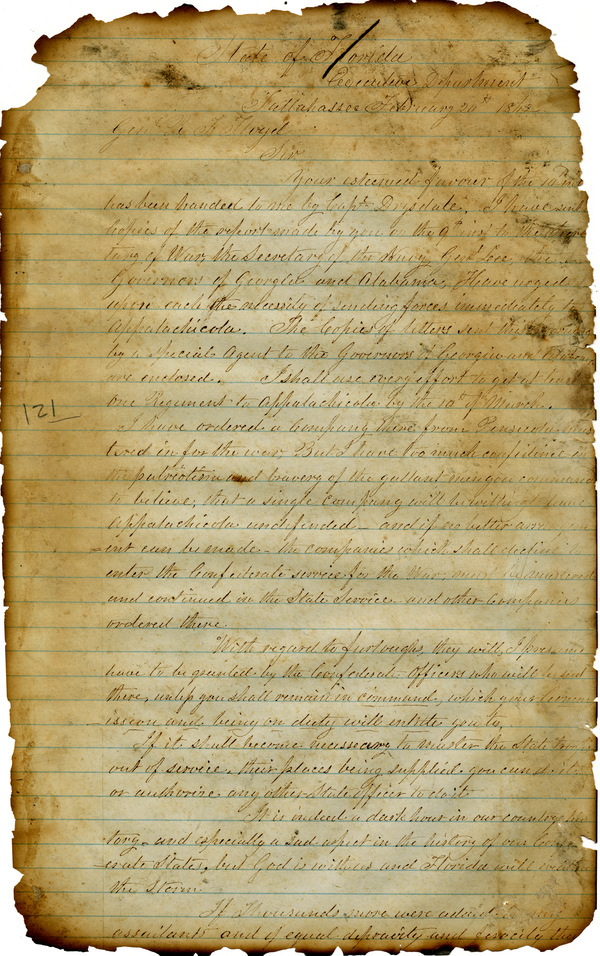 State of Florida
Executive Department
Tallahassee February 24th 186
Genl R F Floyd
Sir
Your esteemed favour of the
has been handed to me by Capt. Drysdale. I have sent
Copies of the report made by you on the 9th inst to the
tary of War, the Secretary of the Navy, Genl Lee, the
Governors of Georgia and Alabama, & have urged
upon each the necessity of sending forces immediately to
Appalachicola. The Copies of letters sent this
by a special Agent to the Governors of Georgia and
are enclosed. I shall use every effort to get at least
one Regiment to Appalachicola by the 10th of March.
121
I have ordered a Company there from Pensacola
tered in for the war. But I have too much confidence in
the patriotism and bravery of the gallant men you command
to believe, that a single Company will be
Appalachicola undefended - and if no better
ent can be made - the companies which shall decline
enter the Confederate service for the War, may be mustered
and continued in the State Service and other Companies
ordered there.
With regard to furloughs, they will, I presume
have to be granted by the Confederate Officers who will be sent
there, unless you shall remain in command, which your
ission and being on duty will entitle you to.
If it shall become necessary to muster the State troops
out of service, their places being supplied, you can do it
or authorize any other State Officer to do it.
It is indeed a dark hour in our country
tory - and especially a sad aspect in the history of our
erate States, but God is with us and Florida will
the Storm.
If Thousands more were added to
assailants and if equal depravity and ferocity